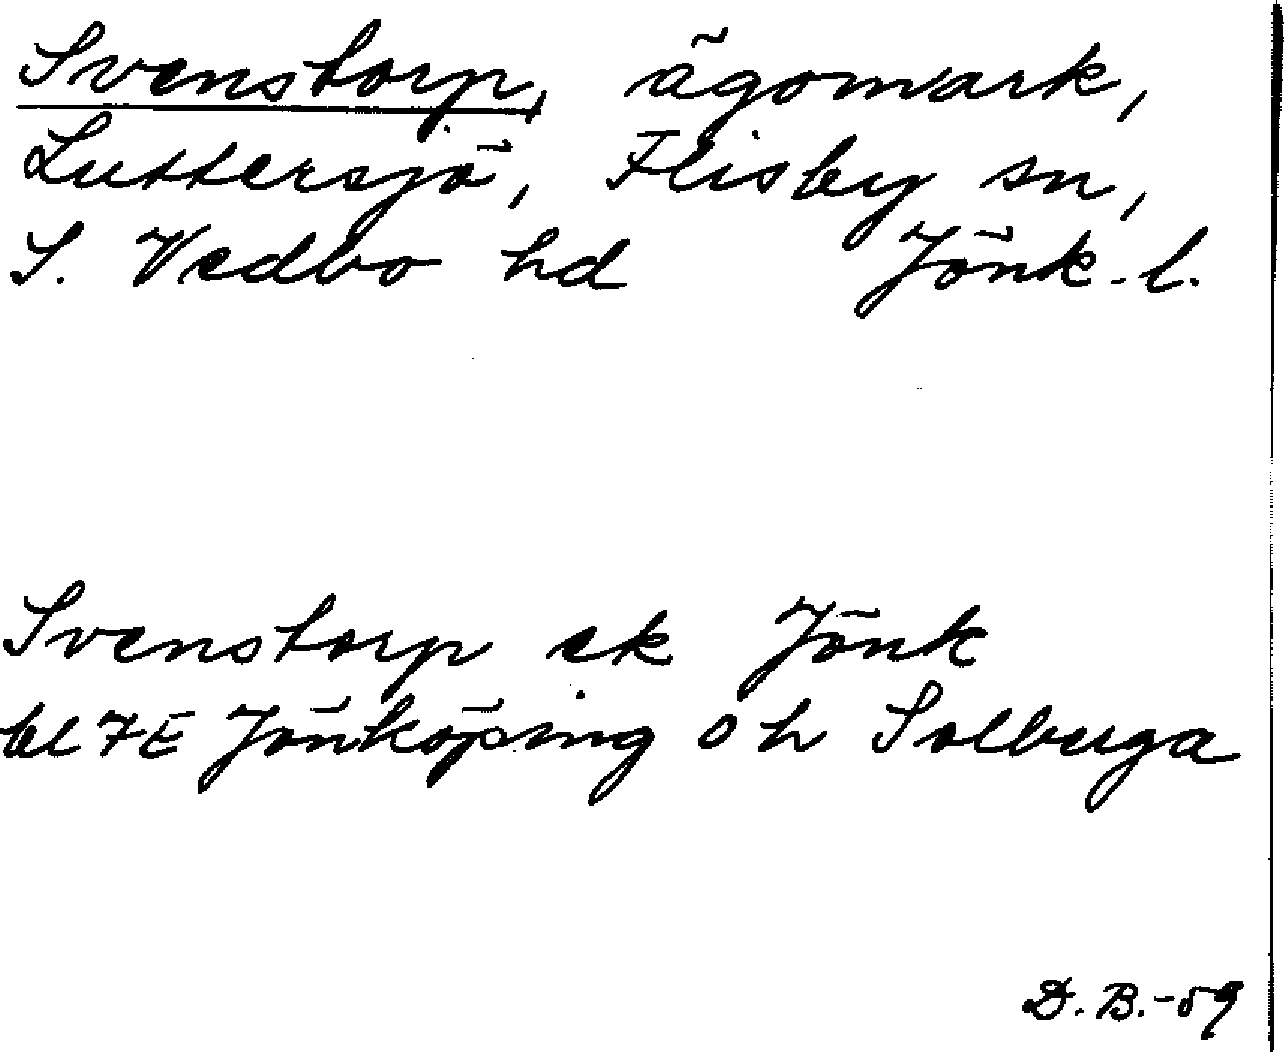 Svenstorp, ägomark,
Luttersjö, Flisby sn,
S. Vedbo hd Jönk. l.
Svenstorp ek Jönk
bl 7E Jönköping o h Solberga
D. B. -59